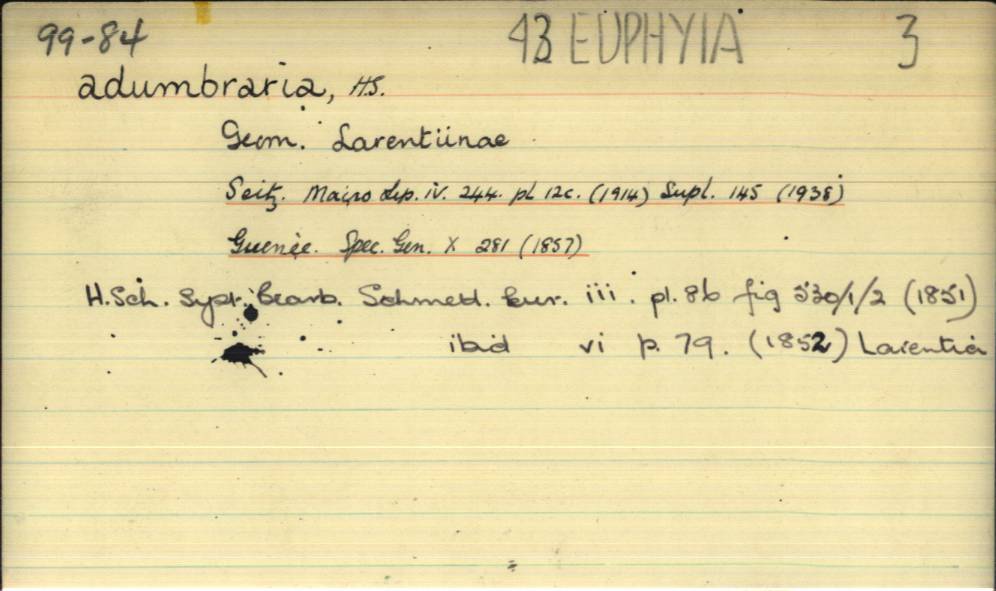 99-84 43 EUPHYIA 3
adumbraria, HS.
Geom. Larentiinae
Seitz. Macro Lep. iv. 244. pl 12c. (1914) Supl. 145 (1938)
Guenée. Spec. Gen. X 281 (1857)
H.Sch. Syst. Bearb. Schmett. Eur. iii. pl. 86 fig 530/1/2 (1851)
ibid vi p. 79. (1852) Larentia